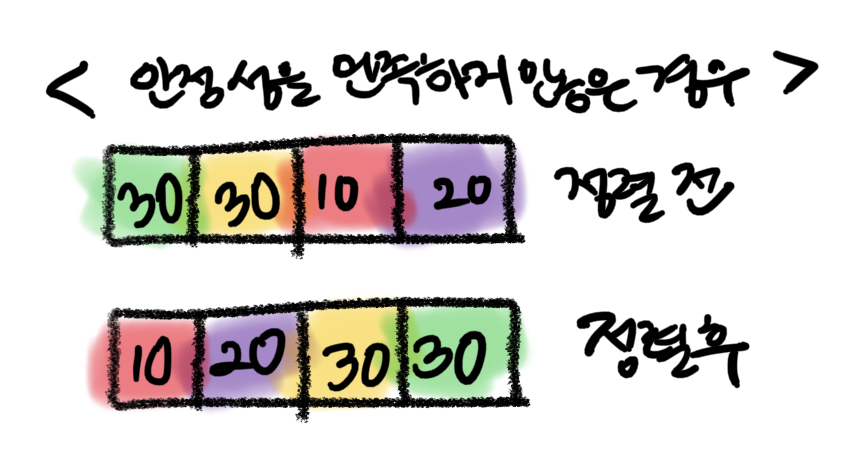 < 안정성을 만족하지 않은 경우 >
30 30 10 20 정렬 전
10 20 30 30 정렬 후